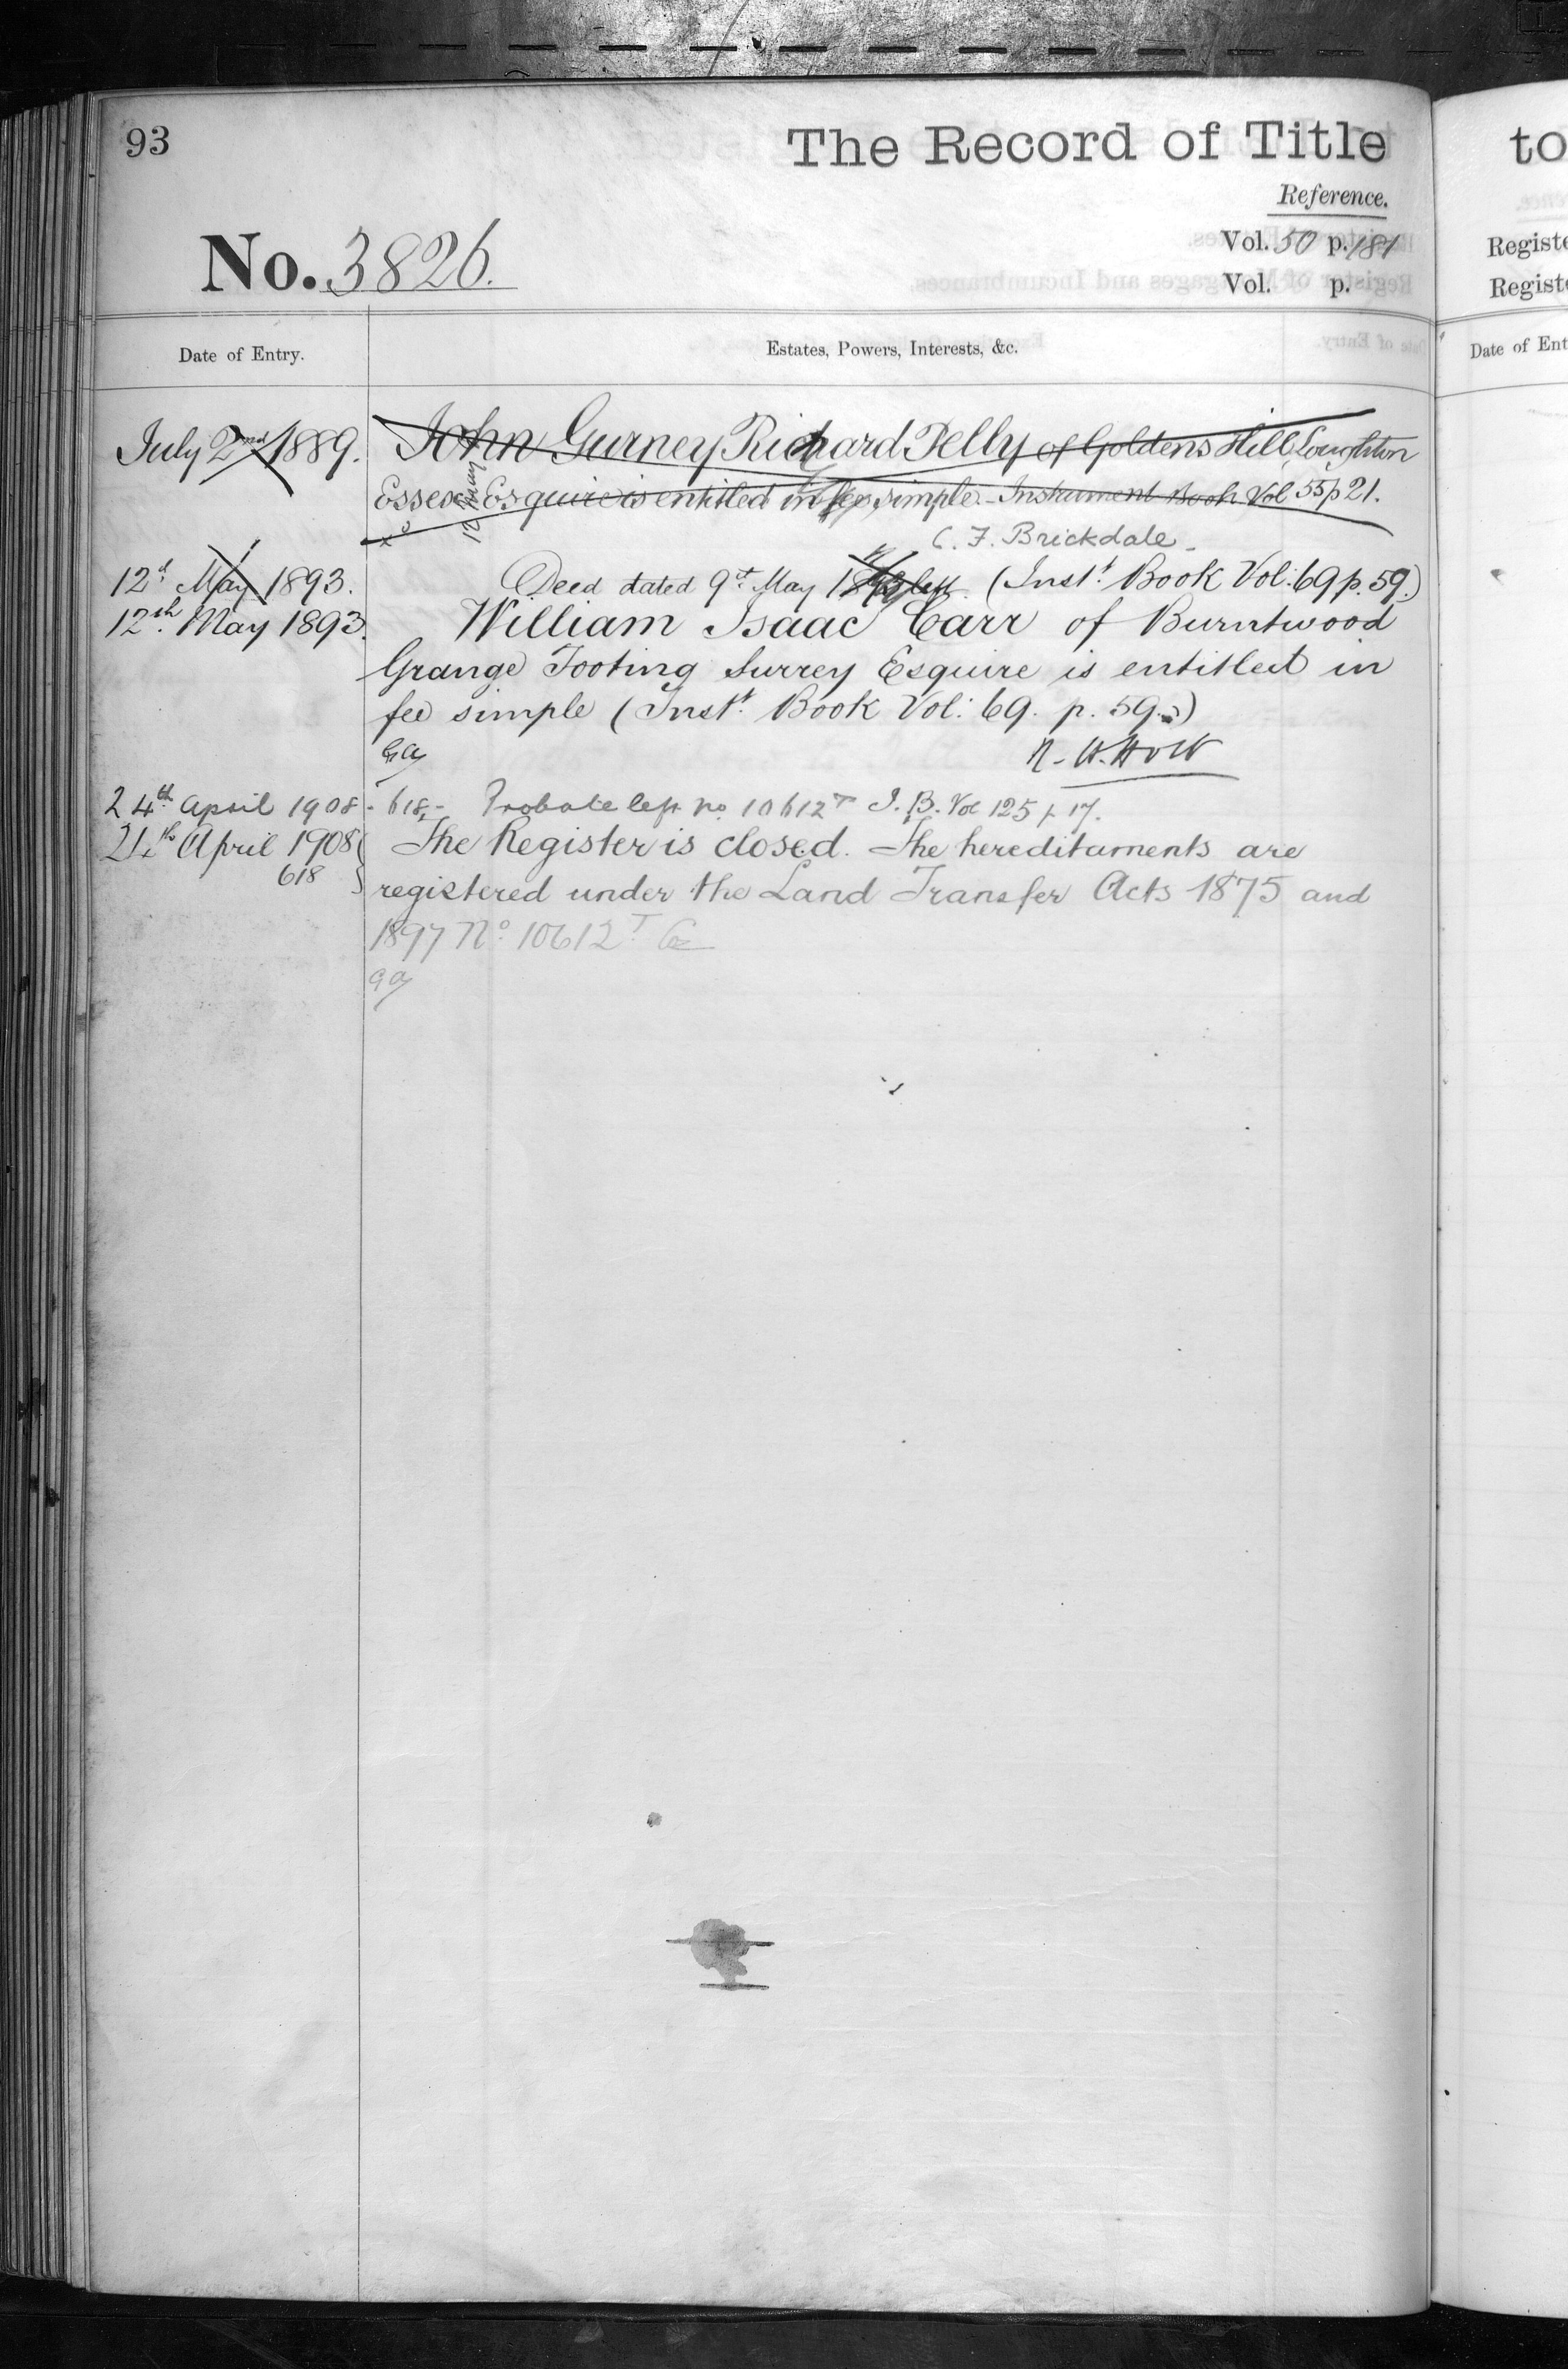 93
The Record of Title
Reference.
No. 3826.
Vol. 50 p. 181
Vol. p.
Date of Entry.
Estates, Powers, Interests, &c.
July 2nd 1889.
John Gurney Richard Pelly of Goldens Hill, Loughton
Essex Esquire is entitled in fee simple - Instrument Book Vol 55 p 21.
12 May
C. F. Brickdale
12th May 1893.
Deed dated 9th May 1893 left. (Instt. Book Vol: 69 p. 59.)
12th May 1893.
William Isaac Carr of Burntwood
Grange Tooting Surrey Esquire is entitled in
fee simple (Instt. Book Vol: 69. p. 59.)
R. H. Holt
24th April 1908 - 618 - Probate left No. 10612T I. B. Vol 125 p 17.
24th April 1908
618
The Register is closed. The hereditaments are
registered under the Land Transfer Acts 1875 and
1897 No. 10612T
to
Registe
Registe
Date of Ent